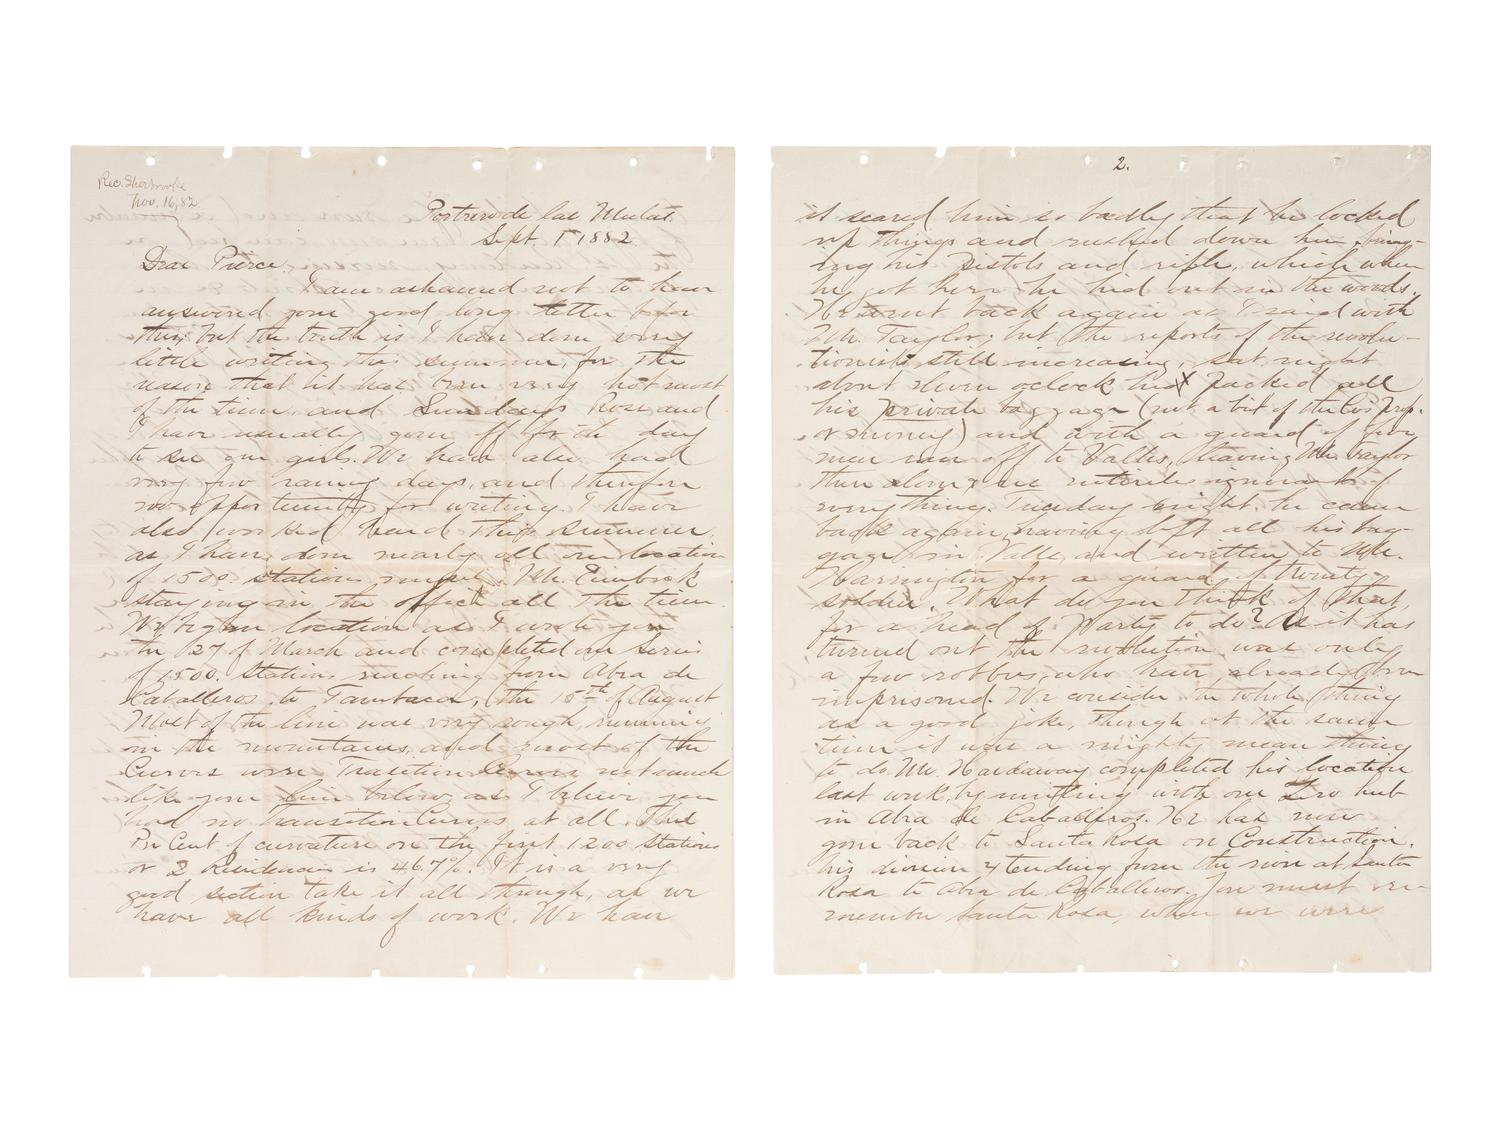 Rec. Sherbrooke
Nov. 16, 82.
Portrero de las Mulas.
Sept. 1 1882
Dear Pierce,
I am ashamed not to have
answered your good long letter before
this, but the truth is I have done very
little writing this summer, for the
reason that it has been very hot most
of the time, and Sundays Rose and
I have usually gone off for the day
to see our girls. We have also had
very few rainy days, and therefore
no opportunity for writing. I have
also worked hard this summer,
as I have done nearly all our location
of 1500 stations myself, Mr. Eimbrok
staying in the office all the time.
We began location as I wrote you
the 27 of March and completed our series
of 1500. Stations reaching from Abra de
Caballeros to Tambaca, the 15th of August
Most of the line was very rough, running
in the mountains, and most of the
Curves were Trasition Curves not much
like your line below, as I believe you
had no Transition Curves at all. The
Per Cent of curvature on the first 1200 Stations
or 2 Residencies is 46.7%. It is a very
good section take it all through, as we
have all kinds of work. We have
2.
it scared him so badly that he locked
up things and rushed down here, bring-
ing his pistols and rifle, which when
he got here he hid out in the woods.
He went back again as I said with
Mr. Taylor; but the reports of the revolu-
tionists still increasing, sat. night
about eleven o'clock he X packed all
his private baggage (not a bit of the Co's prop.
or money) and with a guard of five
men ran off to Valles, leaving Mr. Taylor
there alone, in entire ignorance of
everything. Tuesday night he came
back again, having left all his bag-
gage in Valles, and written to Mr.
Harrington for a guard of twenty
soldiers. What do you think of that,
for a head of party to do? As it has
turned out the revolution was only
a few robbers, who have already been
imprisoned. We consider the whole thing
as a good joke, though at the same
time it was a mighty mean thing
to do. Mr. Hardaway completed his location
last week, by meeting with our Zero hub
in Abra de Caballeros. He has now
gone back to Santa Rosa on Construction,
his division extending from the river at Santa
Rosa to Abra de Caballeros. You must re-
member Santa Rosa, when we were